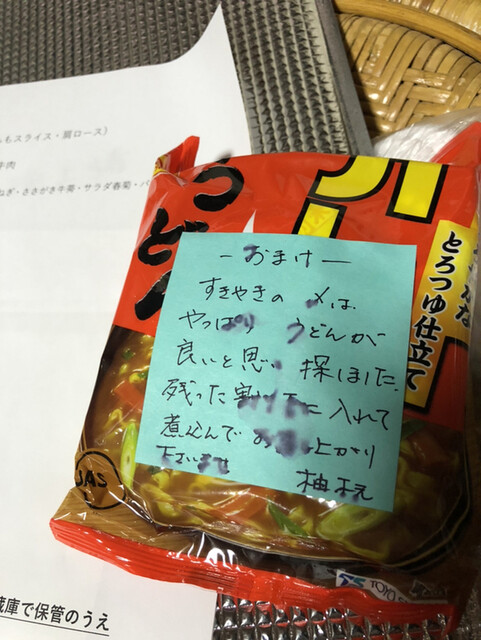 ももスライス・肩ロース)
牛肉
ねぎ・ささがき牛蒡・サラダ春菊・バ
うどん
とろつゆ仕立て
ーおまけー
すきやきの 〆は
やっぱり うどんが
良いと思 探しました。
残った に入れて
煮込んでお 上がり
下さいませ
柚
JAS
蔵庫で保管のうえ